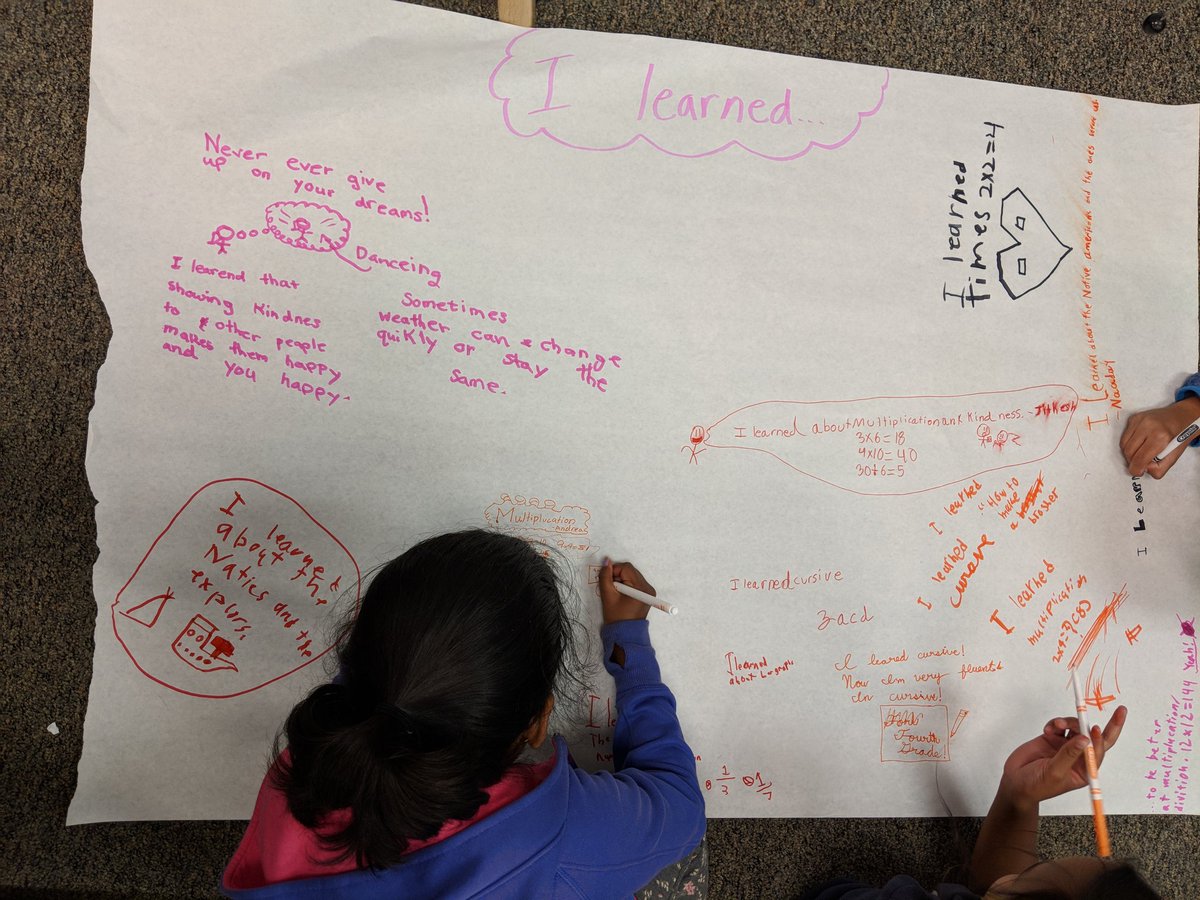 I learned...
Never ever give
up on your
dreams!
Danceing
I learend that
showing Kindnes
to other people
makes them happy
and you happy.
Sometimes
weather can change
quikly or stay the
same.
I learned
times 2x2=4
I Learned about the Native americans and the ones
I learned about Multiplication and Kindness.
3x6=18
4x10=40
30÷6=5
I learned
about the
Natics and the
explors.
Multiplucation
Andrea
9x9=81
I learned
How to
make
a
brother
I learned
cursive
I learned
multiplication
I learned cursive
3acd
I learned
about
I leared cursive!
Now Im very fluent
In cursive!
Fourth
Grade!
1/3
1/7
I Learn
...to be better
at multiplucation/
division. 12x12=144 Yeah!